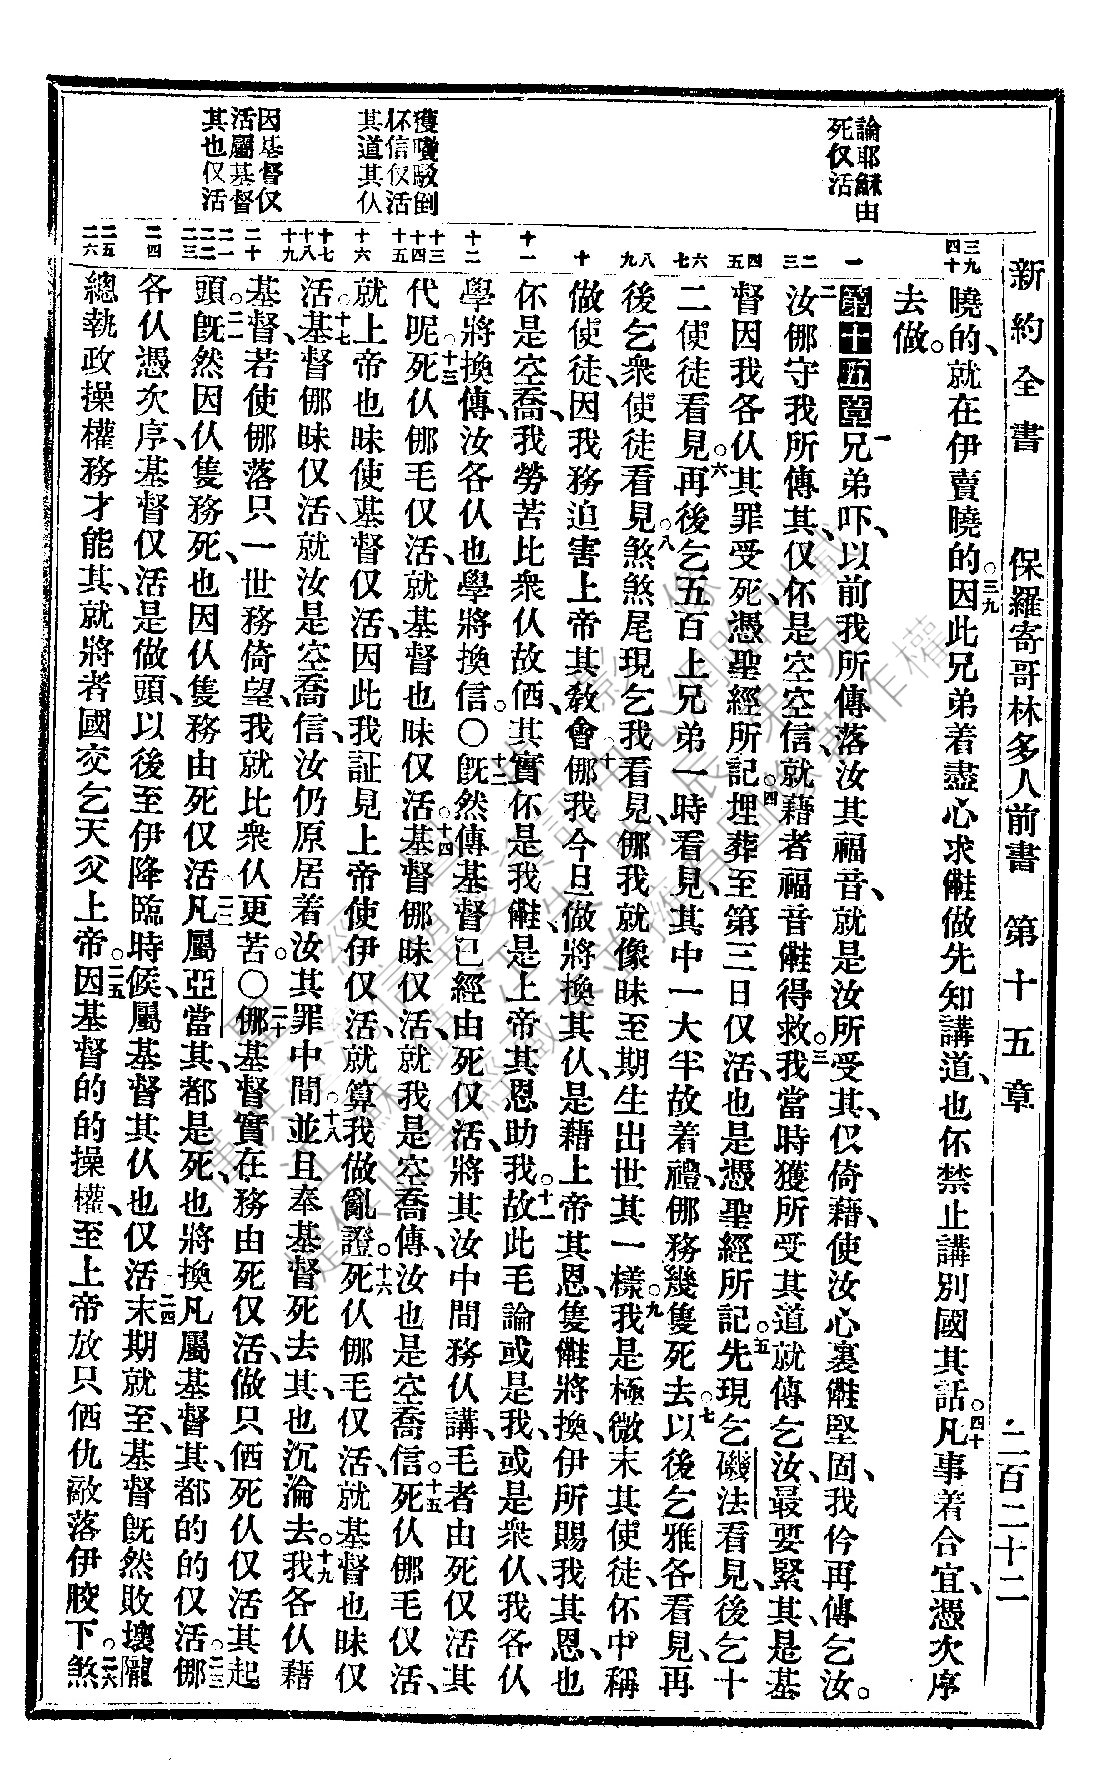 新約全書 保羅寄哥林多人前書 第十五章 二百二十二
論耶穌由
死仅活
獲嘵駁倒
伓信仅活
其道其仈
因基督仅
活屬基督
其也仅活
曉的、就在伊賣曉的。因此兄弟着盡心求𠆧做先知講道、也伓禁止講別國其話。凡事着合宜、憑次序
去做。
第十五章 兄弟吓、以前我所傳落汝其福音、就是汝所受其、仅倚藉、使汝心裏𠆧堅固、我仱再傳乞汝。
汝㑚守我所傳其、仅伓是空空信、就藉者福音𠆧得救。我當時獲所受其道、就傳乞汝、最要緊其、是基
督因我各仈其罪受死、憑聖經所記、埋葬至第三日仅活、也是憑聖經所記、先現乞磯法看見、後乞十
二使徒看見。再後乞五百上兄弟一時看見、其中一大半故着禮、㑚務幾隻死去。以後乞雅各看見、再
後乞衆使徒看見。煞煞尾現乞我看見、㑚我就像昧至期生出世其一樣。我是極微末其使徒、伓中稱
做使徒、因我務迫害上帝其教會。㑚我今旦做將換其仈、是藉上帝其恩、隻𠆧將換、伊所賜我其恩、也
伓是空喬、我勞苦比衆仈故俩、其實伓是我𠆧、是上帝其恩助我。故此毛論或是我、或是衆仈、我各仈
學將換傳、汝各仈也學將換信。〇既然傳基督已經由死仅活、將其汝中間務仈講、毛者由死仅活其
代呢。死仈㑚毛仅活、就基督也昧仅活。基督㑚昧仅活、就我是空喬傳、汝也是空喬信。死仈㑚毛仅活、
就上帝也昧使基督仅活、因此我証見上帝使伊仅活、就算我做亂證。死仈㑚毛仅活、就基督也昧仅
活。基督㑚昧仅活、就汝是空喬信、汝仍原居着汝其罪中間、並且奉基督死去其、也沉淪去。我各仈藉
基督、若使㑚落只一世務倚望、我就比衆仈更苦。〇㑚基督實在務由死仅活、做只俩死仈仅活其起
頭。既然因仈隻務死、也因仈隻務由死仅活。凡屬亞當其、都是死、也將換凡屬基督其、都的的仅活。㑚
各仈憑次序、基督仅活是做頭、以後至伊降臨時候、屬基督其仈也仅活。末期就至、基督既然敗壞隴
總執政操權務才能其、就將者國交乞天父上帝。因基督的的操權、至上帝放只俩仇敵落伊骹下。煞